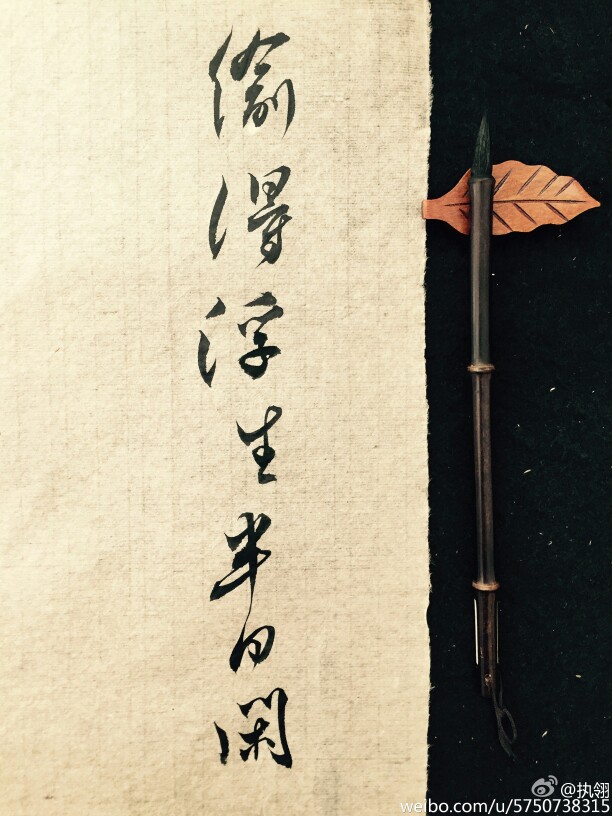 偷得浮生半日閑
@执翎
weibo.com/u/5750738315